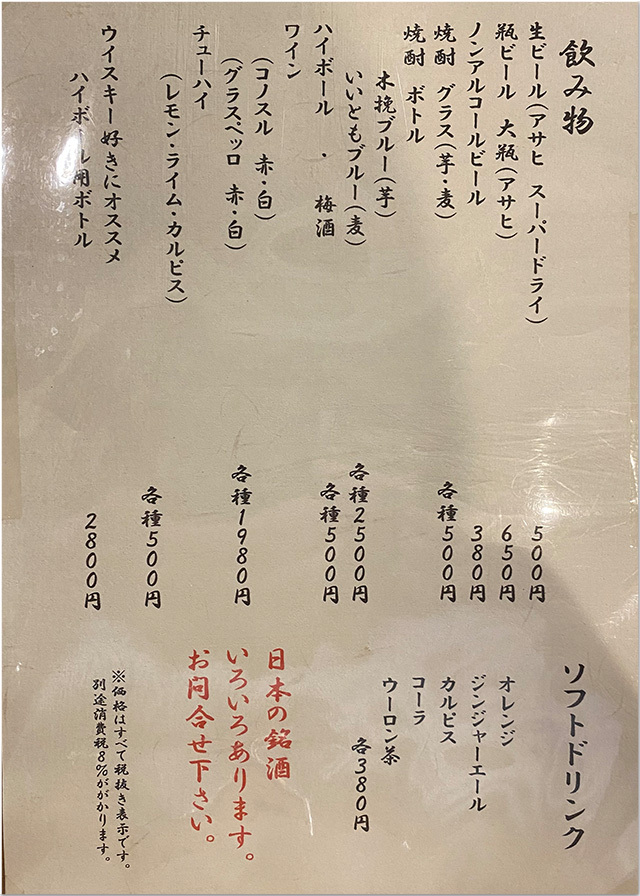 飲み物
生ビール(アサヒ スーパードライ) 500円
瓶ビール 大瓶(アサヒ) 650円
ノンアルコールビール 380円
焼酎 グラス(芋・麦) 各種500円
焼酎 ボトル
木挽ブルー(芋)
いいともブルー(麦) 各種2500円
ハイボール ・ 梅酒 各種500円
ワイン
(コノスル 赤・白)
(グラスペッロ 赤・白) 各種1980円
チューハイ
(レモン・ライム・カルピス) 各種500円
ウイスキー好きにオススメ
ハイボール用ボトル 2800円
ソフトドリンク
オレンジ
ジンジャーエール
カルピス
コーラ
ウーロン茶
各380円
日本の銘酒
いろいろあります。
お問合せ下さい。
※価格はすべて税抜き表示です。
別途消費税8%ががかります。